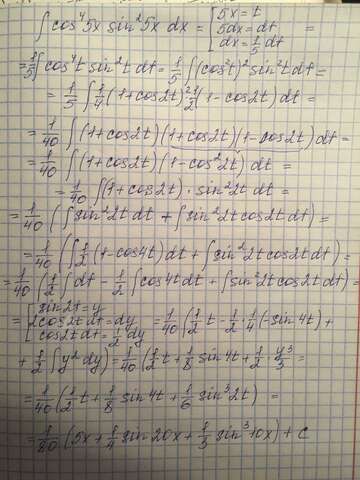 ∫cos⁴5x sin²5x dx = { 5x = t =
5dx = dt
dx = 1/5 dt
= 1/5 ∫cos⁴t sin²t dt = 1/5 ∫(cos²t)² sin²t dt =
= 1/5 ∫ 1/4 (1+cos2t)² 1/2 (1-cos2t) dt =
= 1/40 ∫(1+cos2t)(1+cos2t)(1-cos2t) dt =
= 1/40 ∫(1+cos2t)(1-cos²2t) dt =
= 1/40 ∫(1+cos2t)·sin²2t dt =
= 1/40 (∫sin²2t dt + ∫sin²2t cos2t dt) =
= 1/40 (∫ 1/2 (1-cos4t) dt + ∫sin²2t cos2t dt) =
= 1/40 (1/2 ∫dt - 1/2 ∫cos4t dt + ∫sin²2t cos2t dt) =
= [ sin2t = y
2cos2t dt = dy = 1/40 (1/2 t - 1/2 · 1/4 (-sin4t) +
cos2t dt = 1/2 dy
+ 1/2 ∫y² dy) = 1/40 (1/2 t + 1/8 sin4t + 1/2 · y³/3 =
= 1/40 (1/2 t + 1/8 sin4t + 1/6 sin³2t) =
= 1/80 (5x + 1/4 sin20x + 1/3 sin³10x) + c